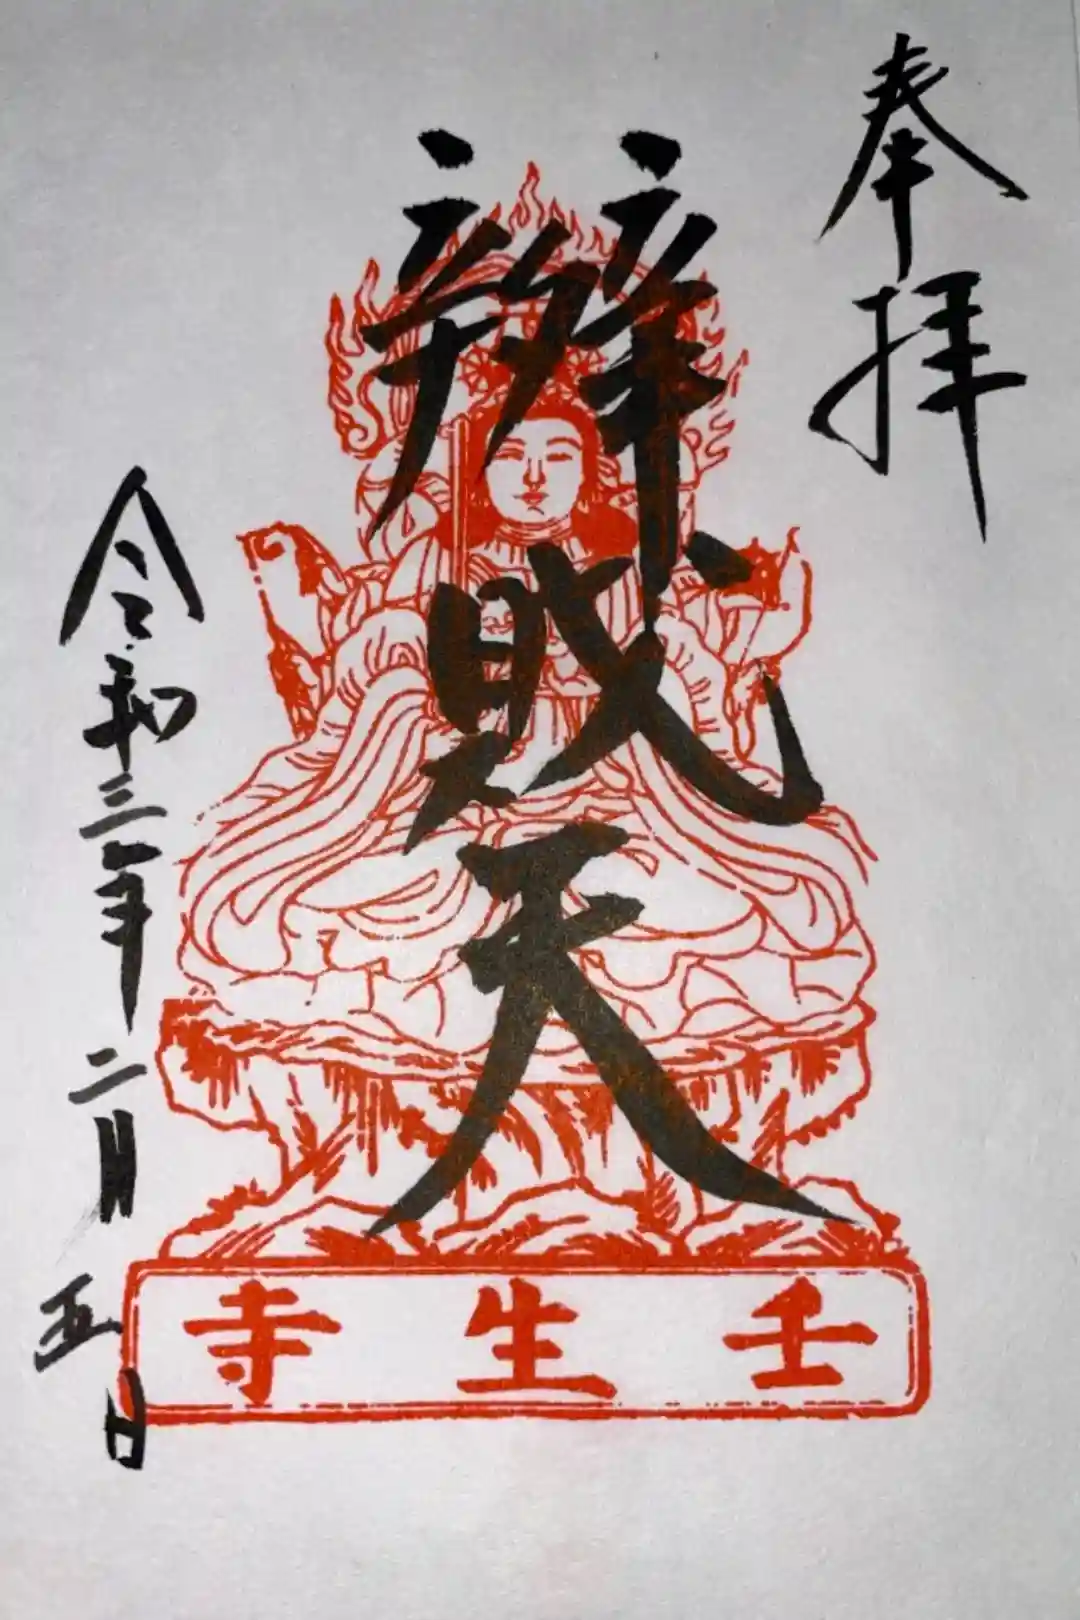 奉拝
辨財天
令和三年二月五日
壬生寺